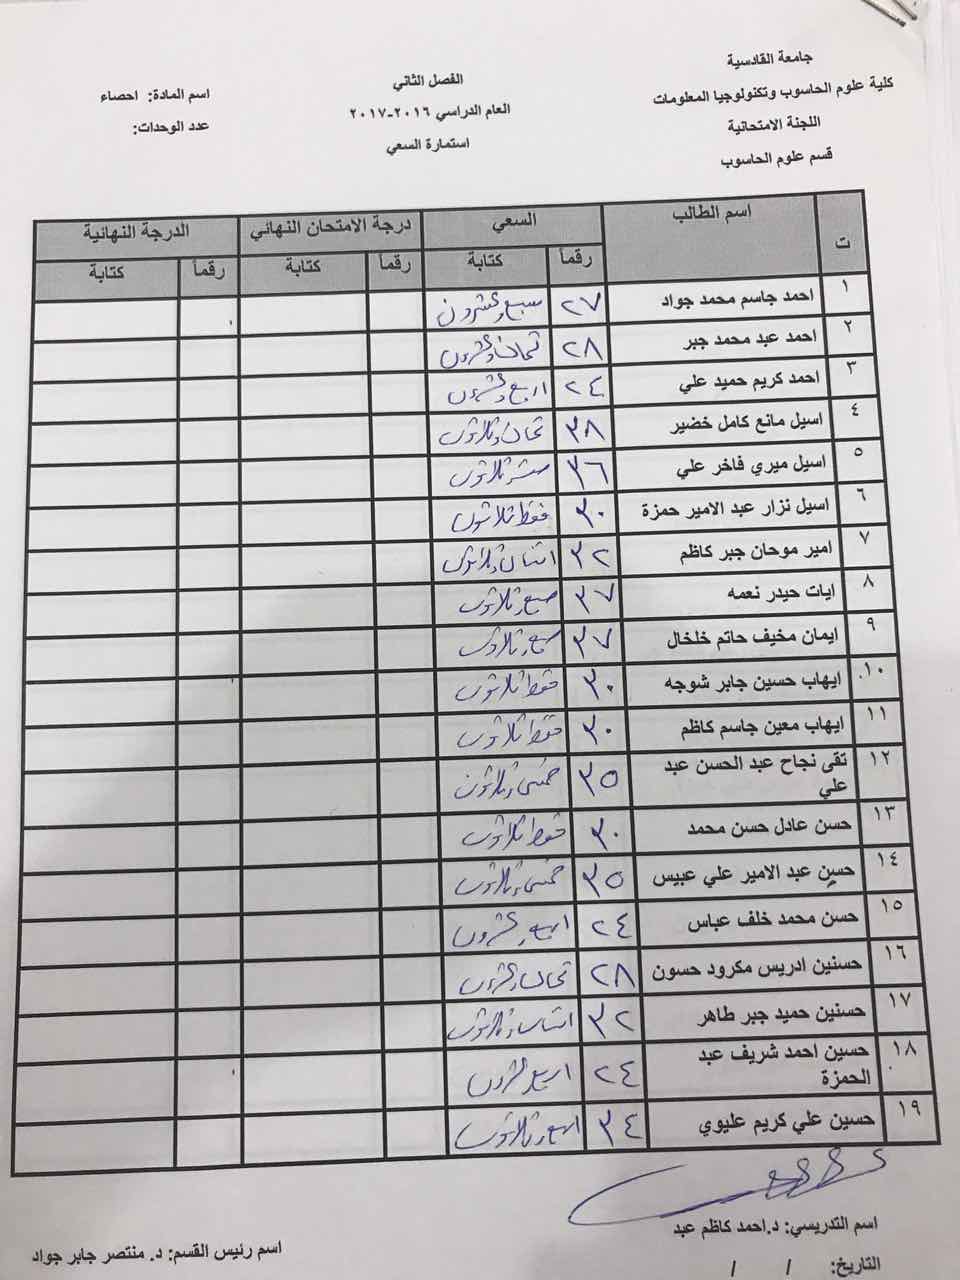 جامعة القادسية
كلية علوم الحاسوب وتكنولوجيا المعلومات
اللجنة الامتحانية
قسم علوم الحاسوب
الفصل الثاني
العام الدراسي ٢٠١٦-٢٠١٧
استمارة السعي
اسم المادة: احصاء
عدد الوحدات:
ت اسم الطالب السعي درجة الامتحان النهائي الدرجة النهائية
رقماً كتابة رقماً كتابة رقماً كتابة
١ احمد جاسم محمد جواد ٢٧ سبع وعشرون
٢ احمد عبد محمد جبر ٢٨ ثمان وعشرون
٣ احمد كريم حميد علي ٢٤ اربع وعشرون
٤ اسيل مانع كامل خضير ٣٨ ثمان وثلاثون
٥ اسيل ميري فاخر علي ٣٦ ست وثلاثون
٦ اسيل نزار عبد الامير حمزة ٣٠ فقط ثلاثون
٧ امير موحان جبر كاظم ٣٢ اثنان وثلاثون
٨ ايات حيدر نعمه ٣٧ سبع وثلاثون
٩ ايمان مخيف حاتم خلخال ٣٧ سبع وثلاثون
١٠. ايهاب حسين جابر شوجه ٣٠ فقط ثلاثون
١١ ايهاب معين جاسم كاظم ٣٠ فقط ثلاثون
١٢ تقى نجاح عبد الحسن عبد
علي ٣٥ خمس وثلاثون
١٣ حسن عادل حسن محمد ٣٠ فقط ثلاثون
١٤ حسين عبد الامير علي عبيس ٣٥ خمس وثلاثون
١٥ حسن محمد خلف عباس ٢٤ اربع وعشرون
١٦ حسنين ادريس مكرود حسون ٢٨ ثمان وعشرون
١٧ حسنين حميد جبر طاهر ٣٢ اثنان وثلاثون
١٨ حسين احمد شريف عبد
الحمزة ٢٤ اربع وعشرون
١٩ حسين علي كريم عليوي ٣٤ اربع وثلاثون
اسم التدريسي: د.احمد كاظم عبد
التاريخ: / /
اسم رئيس القسم: د. منتصر جابر جواد